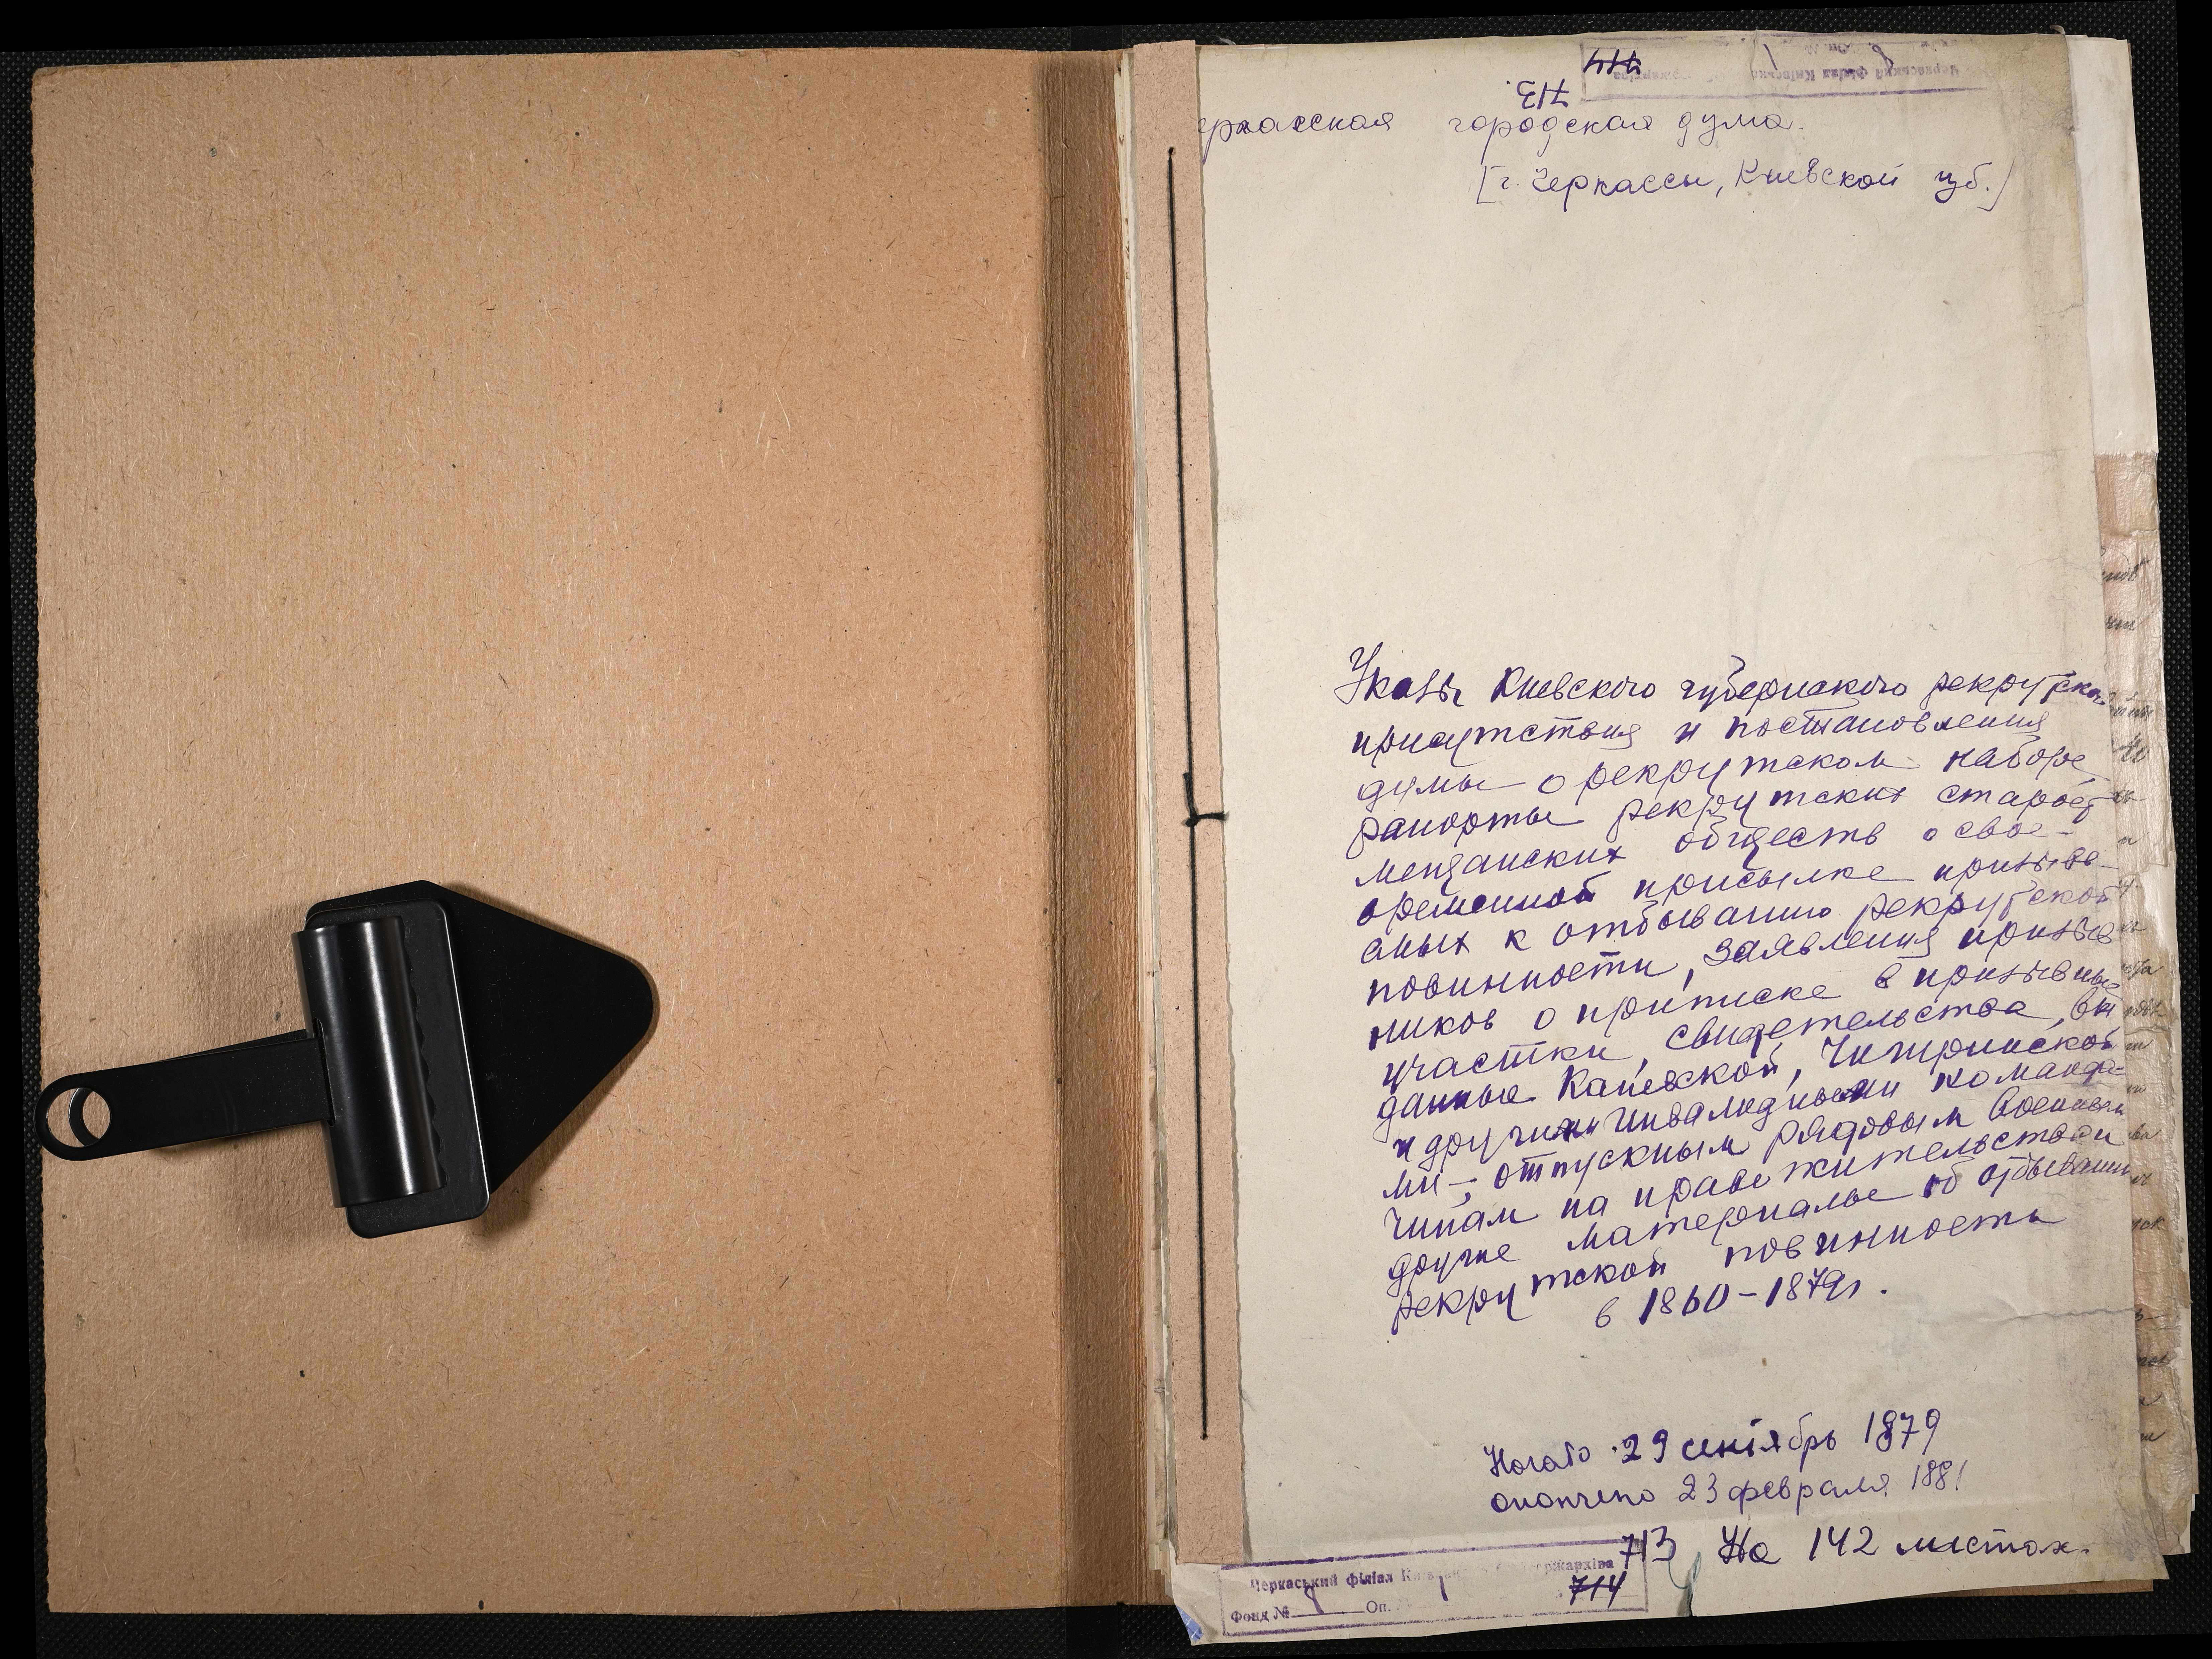 714
713.
еркасская городская дума.
[г. Черкассы, Киевской губ.]
Указы Киевского губернского рекрутско
присутствия и постановления
думы о рекрутском наборе,
рапорты рекрутских старост
мещанских обществ о свое-
временной присылке призыв
аных к отбыванию рекрутской
повинности, заявления призыв
ников о приписке в призывные
участки, свидетельства, вы
данные Каневской, Чигиринской
и другими инвалидными команда-
ми, отпускным рядовым военным
чинам на право жительства и
другие материалы об отбывании
рекрутской повинности
в 1860-1879г.
Начато 29 сентябрь 1879
окончено 23 февраля 1881
713 На 142 листах.
Черкаський філіал держархіва
714
Фонд № 8 Оп. 1